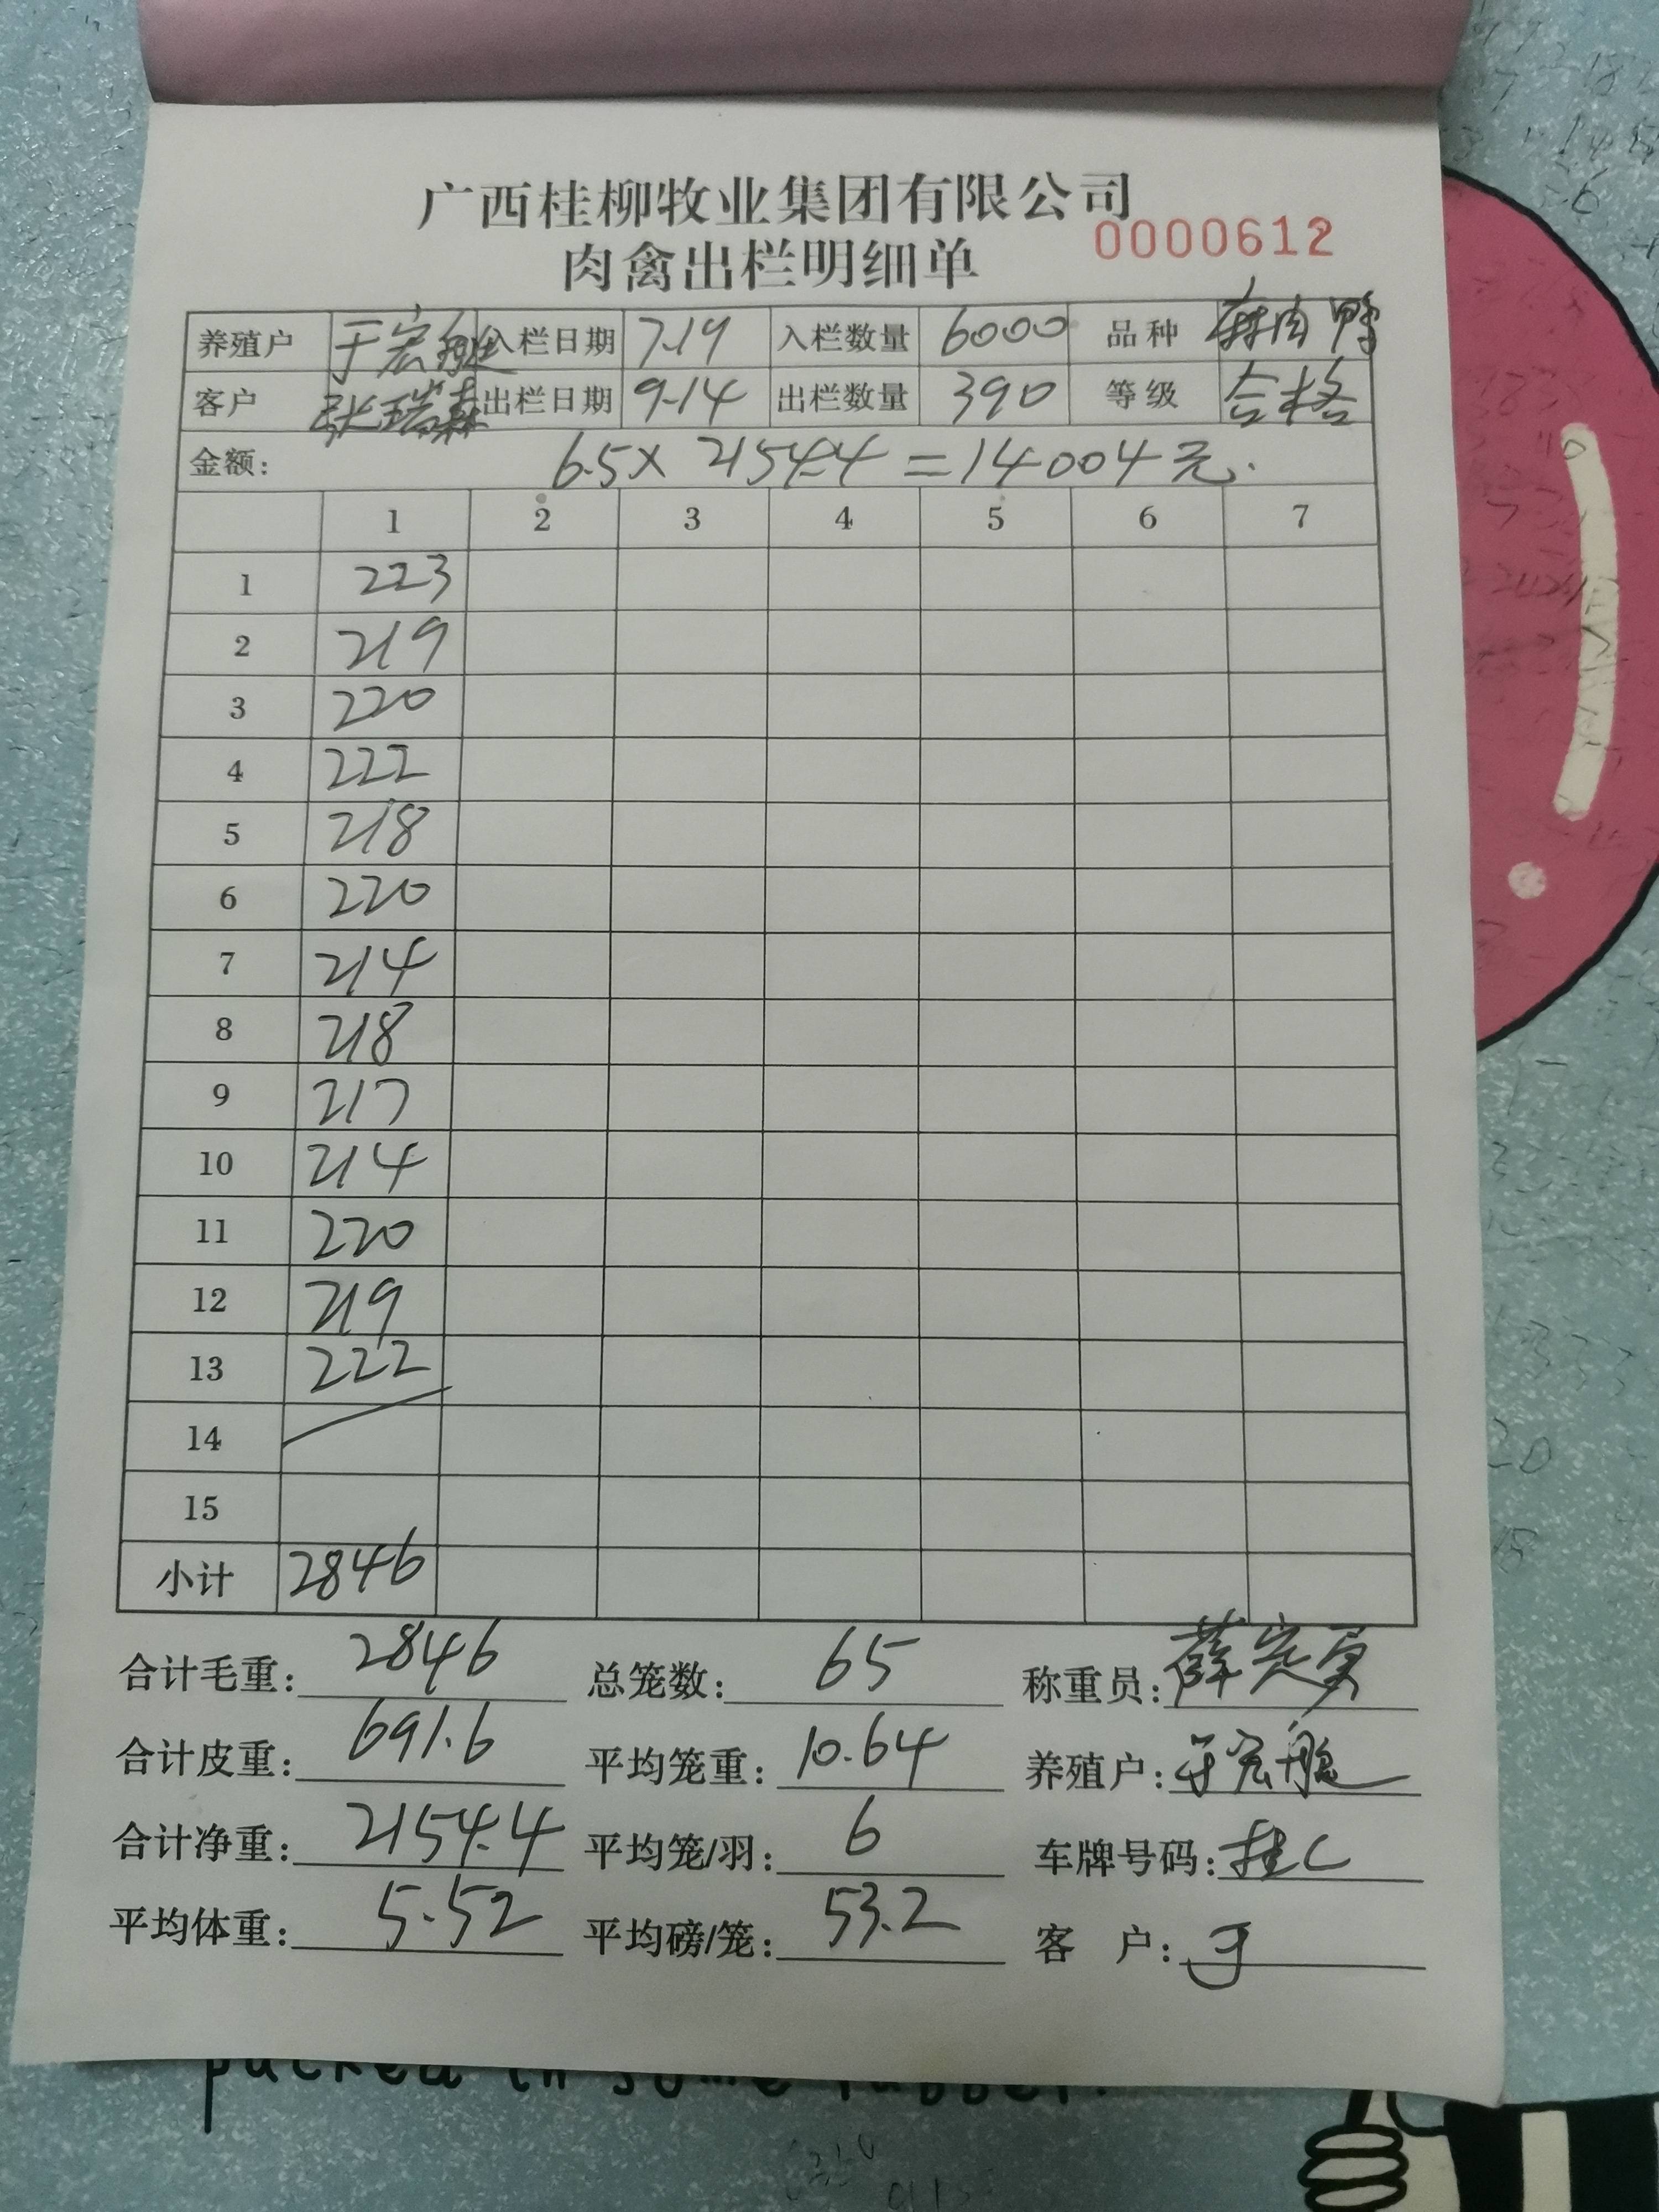 广西桂柳牧业集团有限公司
肉禽出栏明细单 0000612
养殖户 于宏艇 入栏日期 7.19 入栏数量 6000 品种 麻肉鸭
客户 张瑞森 出栏日期 9.14 出栏数量 390 等级 合格
金额: 6.5×2154.4=14004元.
1 2 3 4 5 6 7
1 223
2 219
3 220
4 222
5 218
6 220
7 214
8 218
9 217
10 214
11 220
12 219
13 222
14
15
小计 2846
合计毛重: 2846 总笼数: 65 称重员:
合计皮重: 691.6 平均笼重: 10.64 养殖户: 于宏艇
合计净重: 2154.4 平均笼/羽: 6 车牌号码: 桂C
平均体重: 5.52 平均磅/笼: 53.2 客 户:
packed in some rubber.